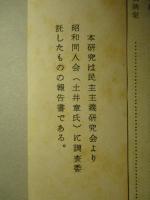 本研究は民主主義研究会より
昭和同人会（土井章氏）に調査委
託したものの報告書である。